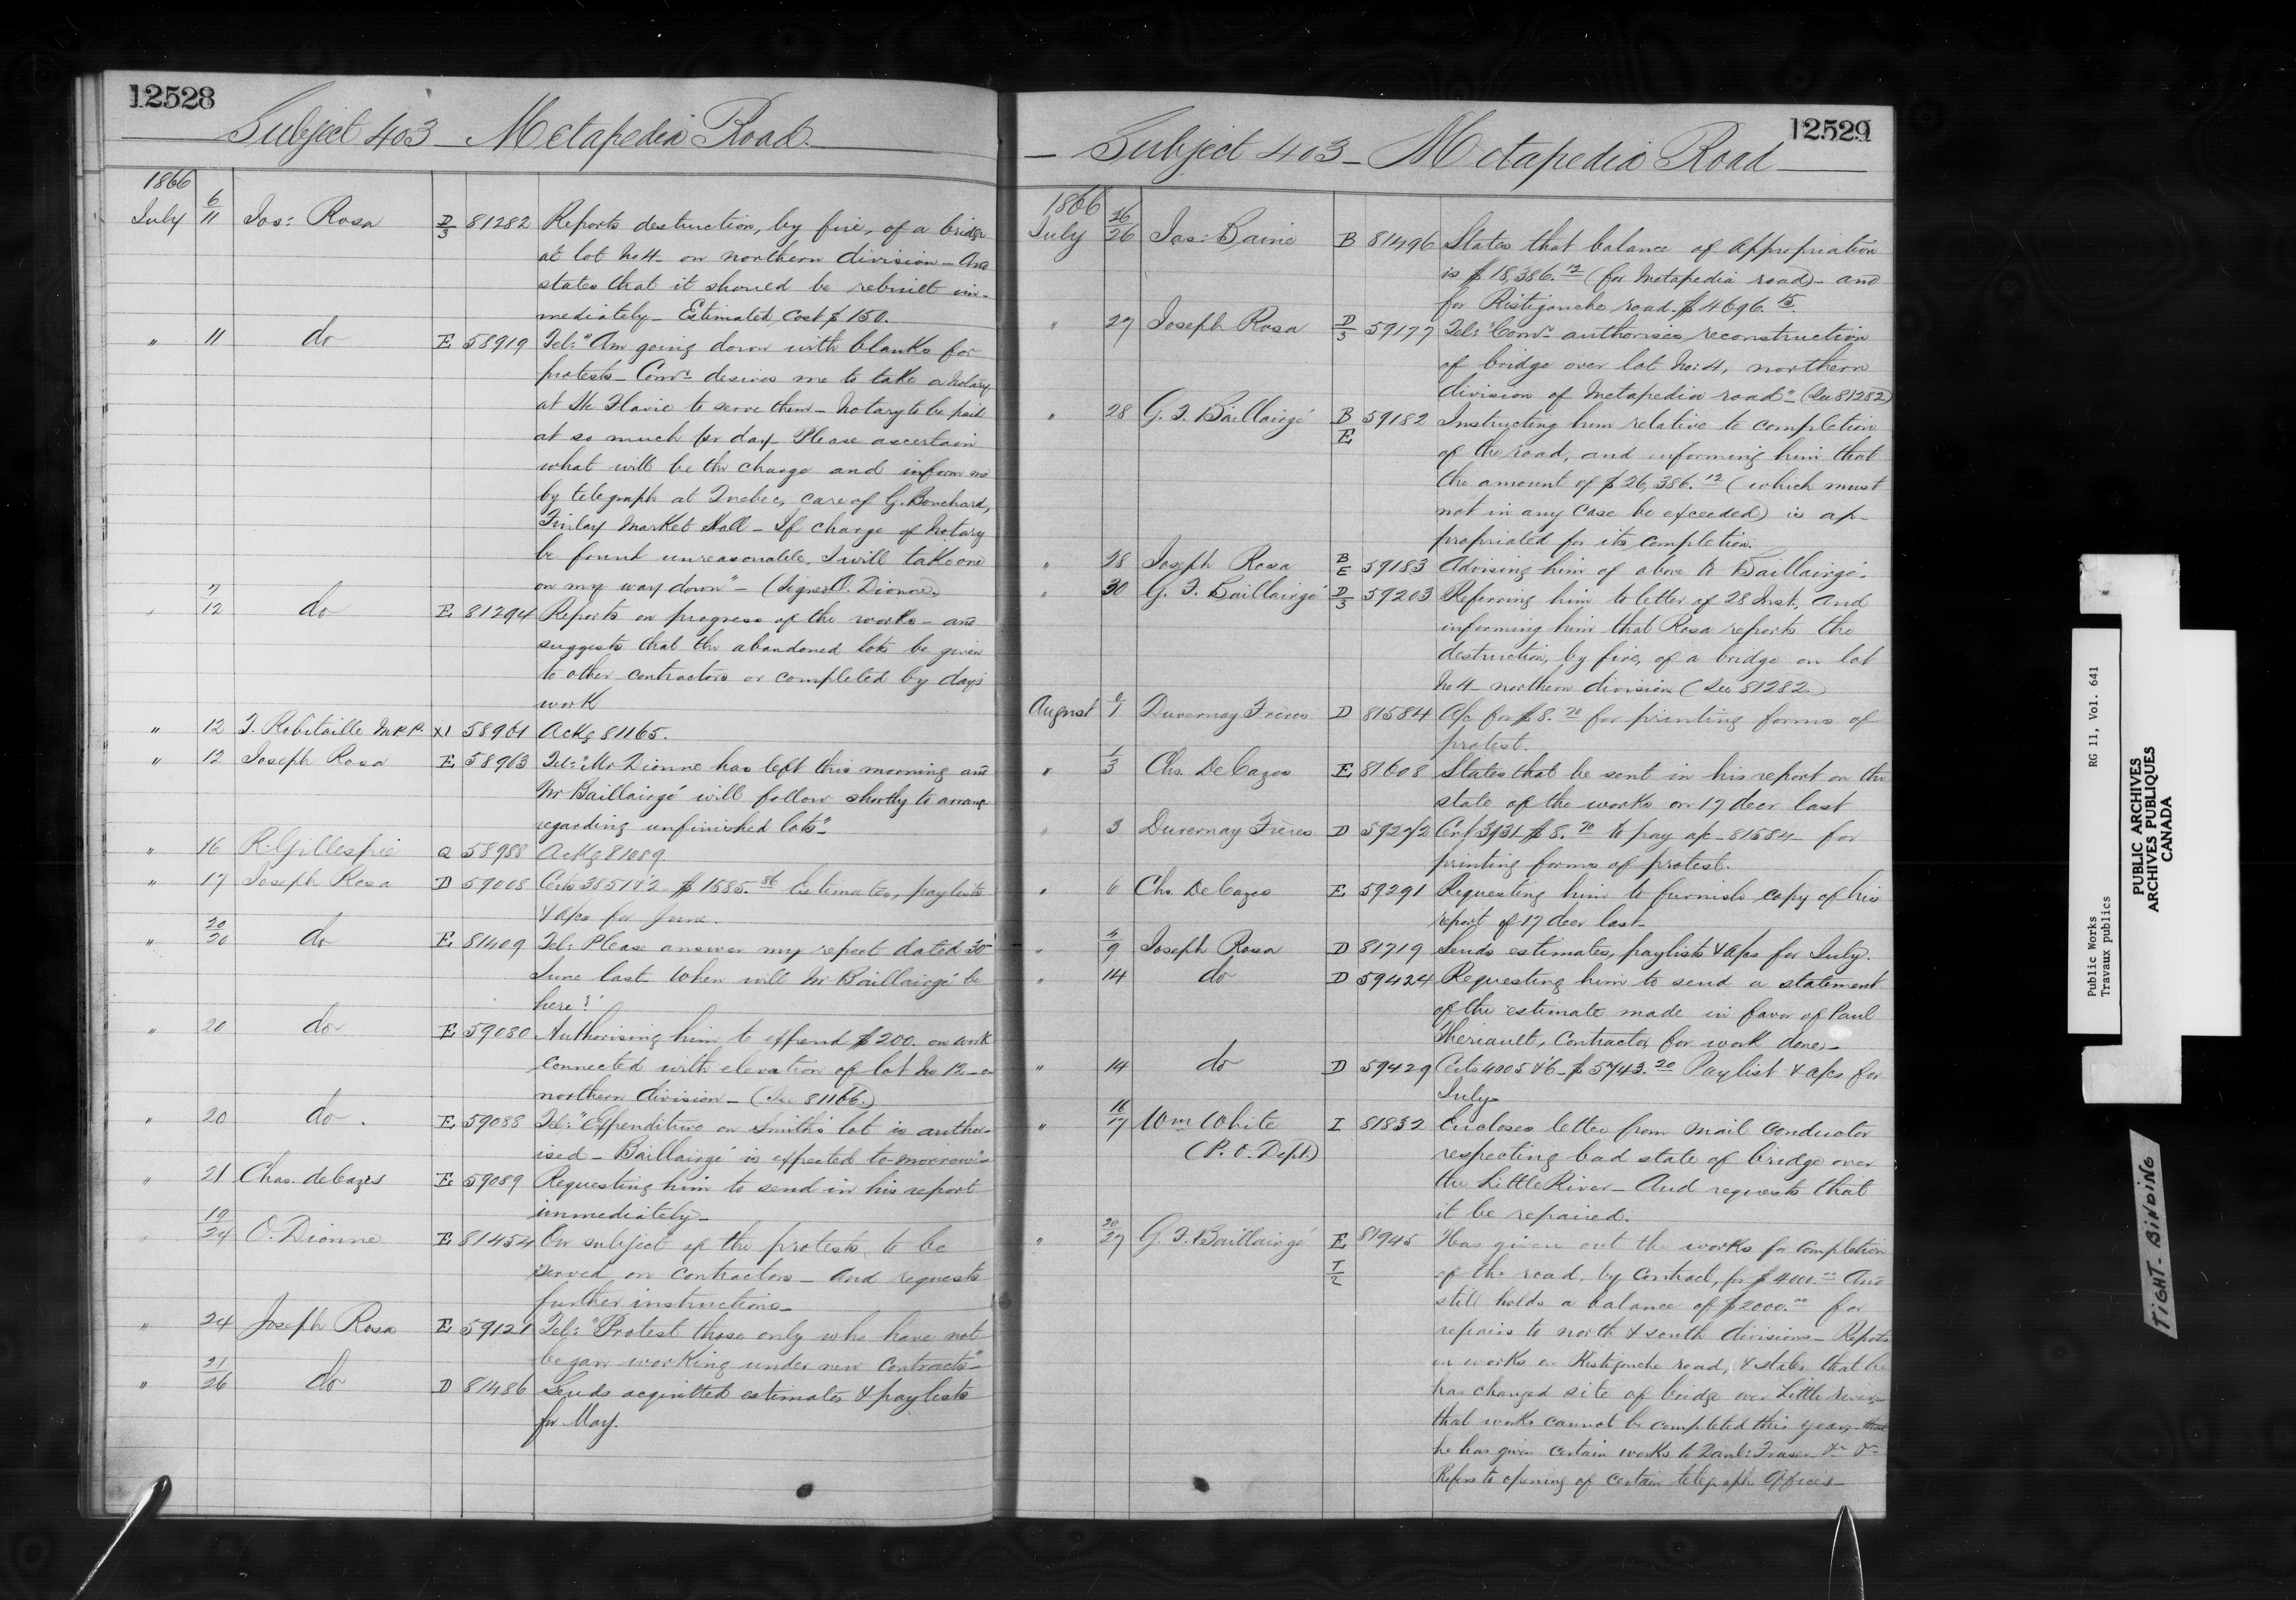 12528
Subject 403 - Metapedia Road.
1866
July 6/11 Jos: Rosa D/3 81282 Reports destruction, by fire, of a bridge
at lot No 4 - on northern division - And
states that it should be rebuilt im-
mediately - Estimated cost $150.
" 11 do E 58919 Tel: "Am going down with blanks for
protests - Comr. desires me to take a Notary
at Ste Flavie to serve them - Notary to be paid
at so much per day - Please ascertain
what will be the charge and inform me
by telegraph at Quebec, care of G. Bouchard,
Finlay Market Hall - If charge of Notary
be found unreasonable, I will take one
on my way down" - (Signed O. Dionne.)
" 7/12 do E 81294 Reports on progress of the works - and
suggests that the abandoned lots be given
to other contractors or completed by day's
work
" 12 T. Robitaille M.P.P. X1 58961 Ackg 81165.
" 12 Joseph Rosa E 58963 Tel: "Mr Dionne has left this morning and
Mr Baillairgé will follow shortly to arrange
regarding unfinished lots".
" 16 R. Gillespie Q 58988 Ackg 81089
" 17 Joseph Rosa D 59008 Certs 3851 & 2 $1585.86 Estimates, paylists
& a/cs for June.
" 20/20 do E 81409 Tel: Please answer my report dated 30
June last When will Mr Baillairgé be
here?"
" 20 do E 59080 Authorising him to expend $200. on work
connected with elevation of lot No 12 - on
northern division - (See 81166.)
" 20 do. E 59088 Tel: "Expenditure on Smith's lot is author-
ised - Baillairgé is expected to-morrow"-
" 21 Chas. deCazes E 59089 Requesting him to send in his report
immediately -
" 19/24 O. Dionne E 81454 On subject of the protests to be
served on contractors - And requests
further instructions -
" 24 Joseph Rosa E 59121 Tel: "Protest those only who have not
began working under new contracts" -
" 21/26 do D 81486 Sends acquitted estimates & paylists
for May.
12529
- Subject 403 - Metapedia Road -
1866
July 26/26 Jas: Baine B 81496 States that balance of appropriation
is $18,386.12 (for Metapedia road) - and
for Ristigouche road - $4696.15.
" 27 Joseph Rosa D/3 59177 Tel: "Comr. authorises reconstruction
of bridge over lot No: 4, northern
division of Metapedia road" - (See 81282)
" 28 G. F. Baillairgé B/E 59182 Instructing him relative to completion
of the road, and informing him that
the amount of $26,386.12 (which must
not in any case be exceeded) is ap-
propriated for its completion.
" 28 Joseph Rosa B/E 59183 Advising him of above to Baillairgé.
" 30 G. F. Baillairgé D/3 59203 Referring him to letter of 28 Inst. And
informing him that Rosa reports the
destruction, by fire, of a bridge on lot
No 4 - northern division (See 81282.)
August /1 Duvernay Frères D 81584 A/c for $8.70 for printing forms of
protest.
" 1/3 Chs. DeCazes E 81608 States that he sent in his report on the
state of the works on 17 decr last
" 3 Duvernay Frères D 59272 Cert 3931 $8.70 to pay a/c - 81584 - for
printing forms of protest.
" 6 Chs DeCazes E 59291 Requesting him to furnish copy of his
report of 17 decr last -
" 4/9 Joseph Rosa D 81719 Sends estimates, paylists & a/cs for July.
" 14 do D 59424 Requesting him to send a statement
of the estimate made in favor of Paul
Theriault, Contractor for work done -
" 14 do D 59429 Certs 4005 & 6 - $5743.20 Paylist & a/cs for
July -
" 16/17 Wm White I 81832 Encloses letter from Mail Conductor
(P. O. Dept.) respecting bad state of bridge over
the Little River - And requests that
it be repaired.
" 20/27 G. F. Baillairgé E 81945 Has given out the works for completion
T/2 of the road, by contract, for $4000.00 And
still holds a balance of $2000.00 for
repairs to north & south divisions - Reports
on works on Ristigouche road, & states that he
has changed site of bridge over Little river -
that works cannot be completed this year - that
he has given certain works to Danl: Fraser &c &c
Refers to opening of certain telegraph offices -
Public Works RG 11, Vol. 641
Travaux publics
PUBLIC ARCHIVES
ARCHIVES PUBLIQUES
CANADA
TIGHT BINDING